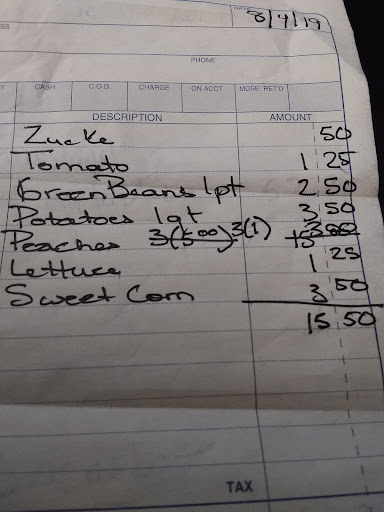 DATE 8/4/19
SS
PHONE
Y CASH C.O.D. CHARGE ON ACCT. MDSE. RET'D
DESCRIPTION AMOUNT
Zucke 50
Tomato 1 25
Green Beans 1pt 2 50
Potatoes 1qt 3 50
Peaches 3(1) 3 00
Lettuce 1 25
Sweet Corn 3 50
15 50
TAX